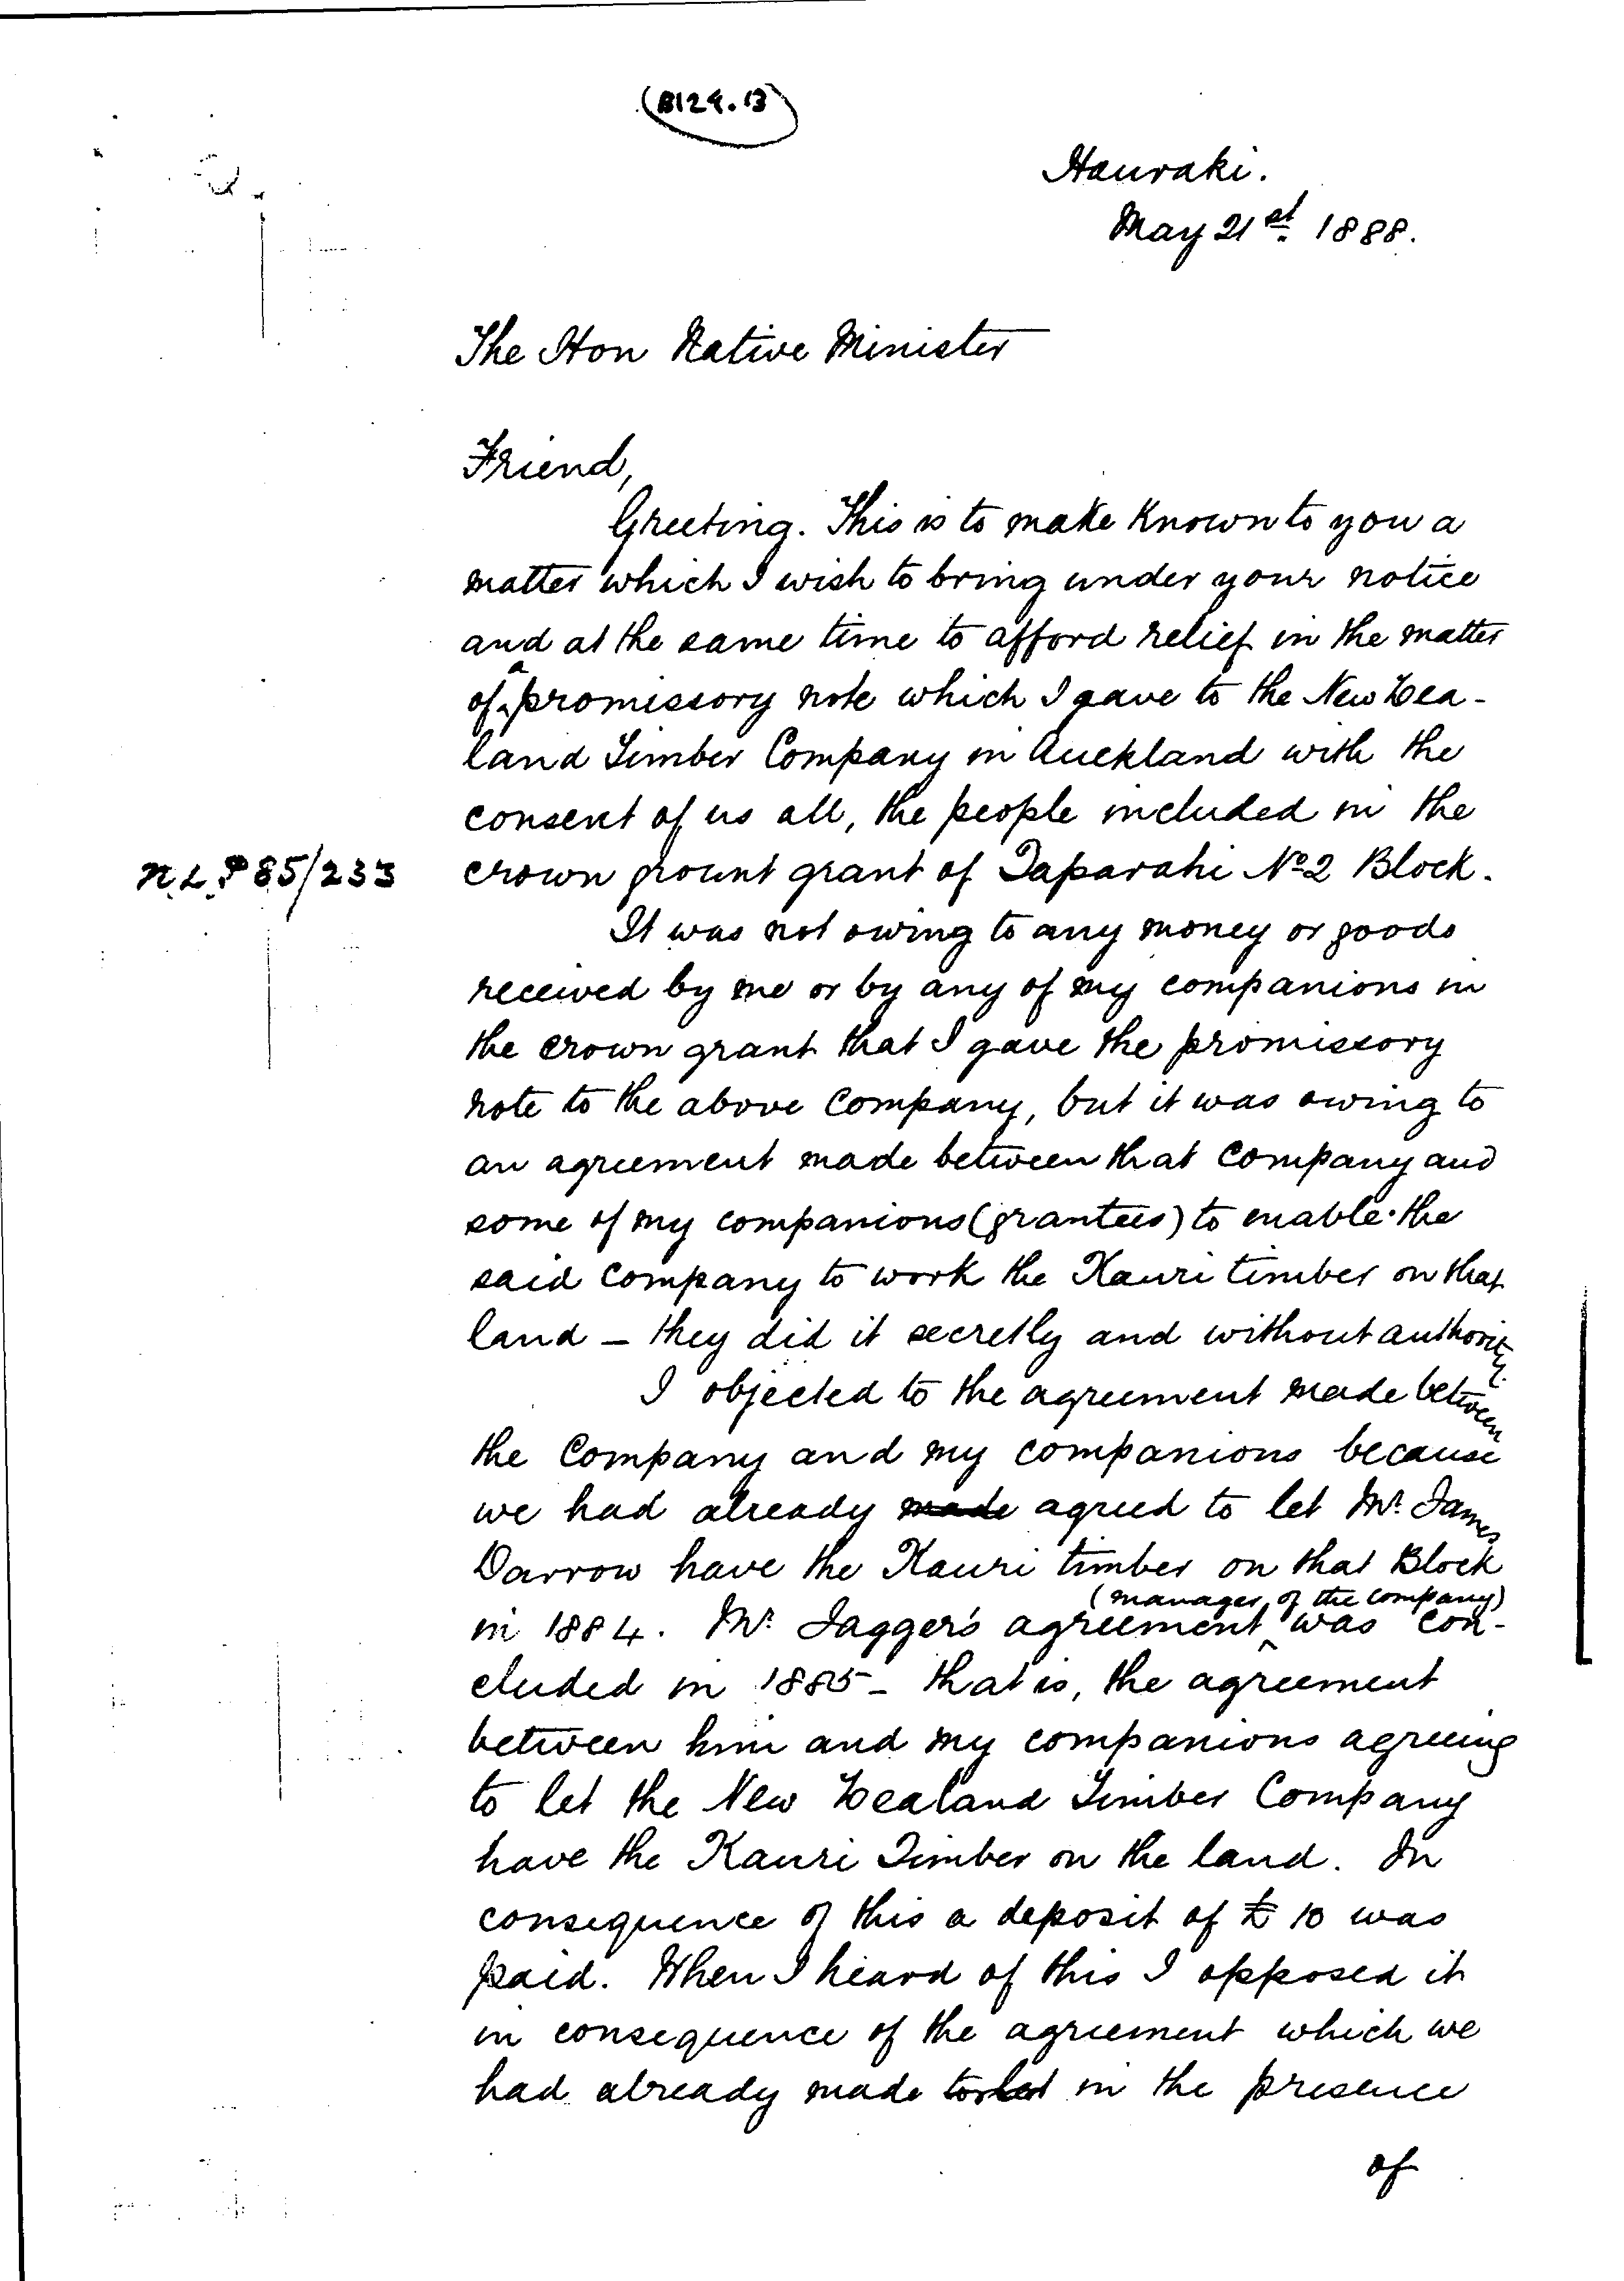 (B124.13)
Hauraki.
May 21st. 1888.
The Hon Native Minister
Friend,
Greeting. This is to make known to you a
matter which I wish to bring under your notice
and at the same time to afford relief in the matter
of a promissory note which I gave to the New Zea-
land Timber Company in Auckland with the
consent of us all, the people included in the
N.L.P 85/233 crown grount grant of Taparahi No 2 Block.
It was not owing to any money or goods
received by me or by any of my companions in
the crown grant that I gave the promissory
note to the above Company, but it was owing to
an agreement made between that Company and
some of my companions (grantees) to enable the
said Company to work the Kauri timber on that
land – they did it secretly and without authority.
I objected to the agreement made between
the Company and my companions because
we had already made agreed to let Mr. James
Darrow have the Kauri timber on that Block
(manager of the company)
in 1884. Mr. Jagger's agreement was con-
cluded in 1885 – that is, the agreement
between him and my companions agreeing
to let the New Zealand Timber Company
have the Kauri Timber on the land. In
consequence of this a deposit of £10 was
paid. When I heard of this I opposed it
in consequence of the agreement which we
had already made in the presence
of